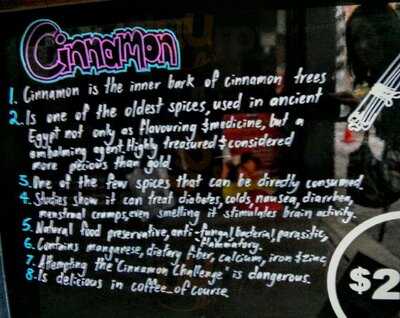 Cinnamon
1. Cinnamon is the inner bark of cinnamon trees
2. Is one of the oldest spices, used in ancient
Egypt not only as flavouring & medicine, but a
embalming agent. Highly treasured & considered
more pecious than gold.
3. One of the few spices that can be directly consumed
4. Studies show it can treat diabetes, colds, nausea, diarrhea,
menstrual cramps, even smelling it stimulates brain activity.
5. Natural food preservative, anti-fungal, bacterial, parasitic,
flammatory.
6. Contains manganese, dietary fiber, calcium, iron & zinc
7. Attempting the "Cinnamon Challenge" is dangerous
8. Is delicious in coffee of course
$2